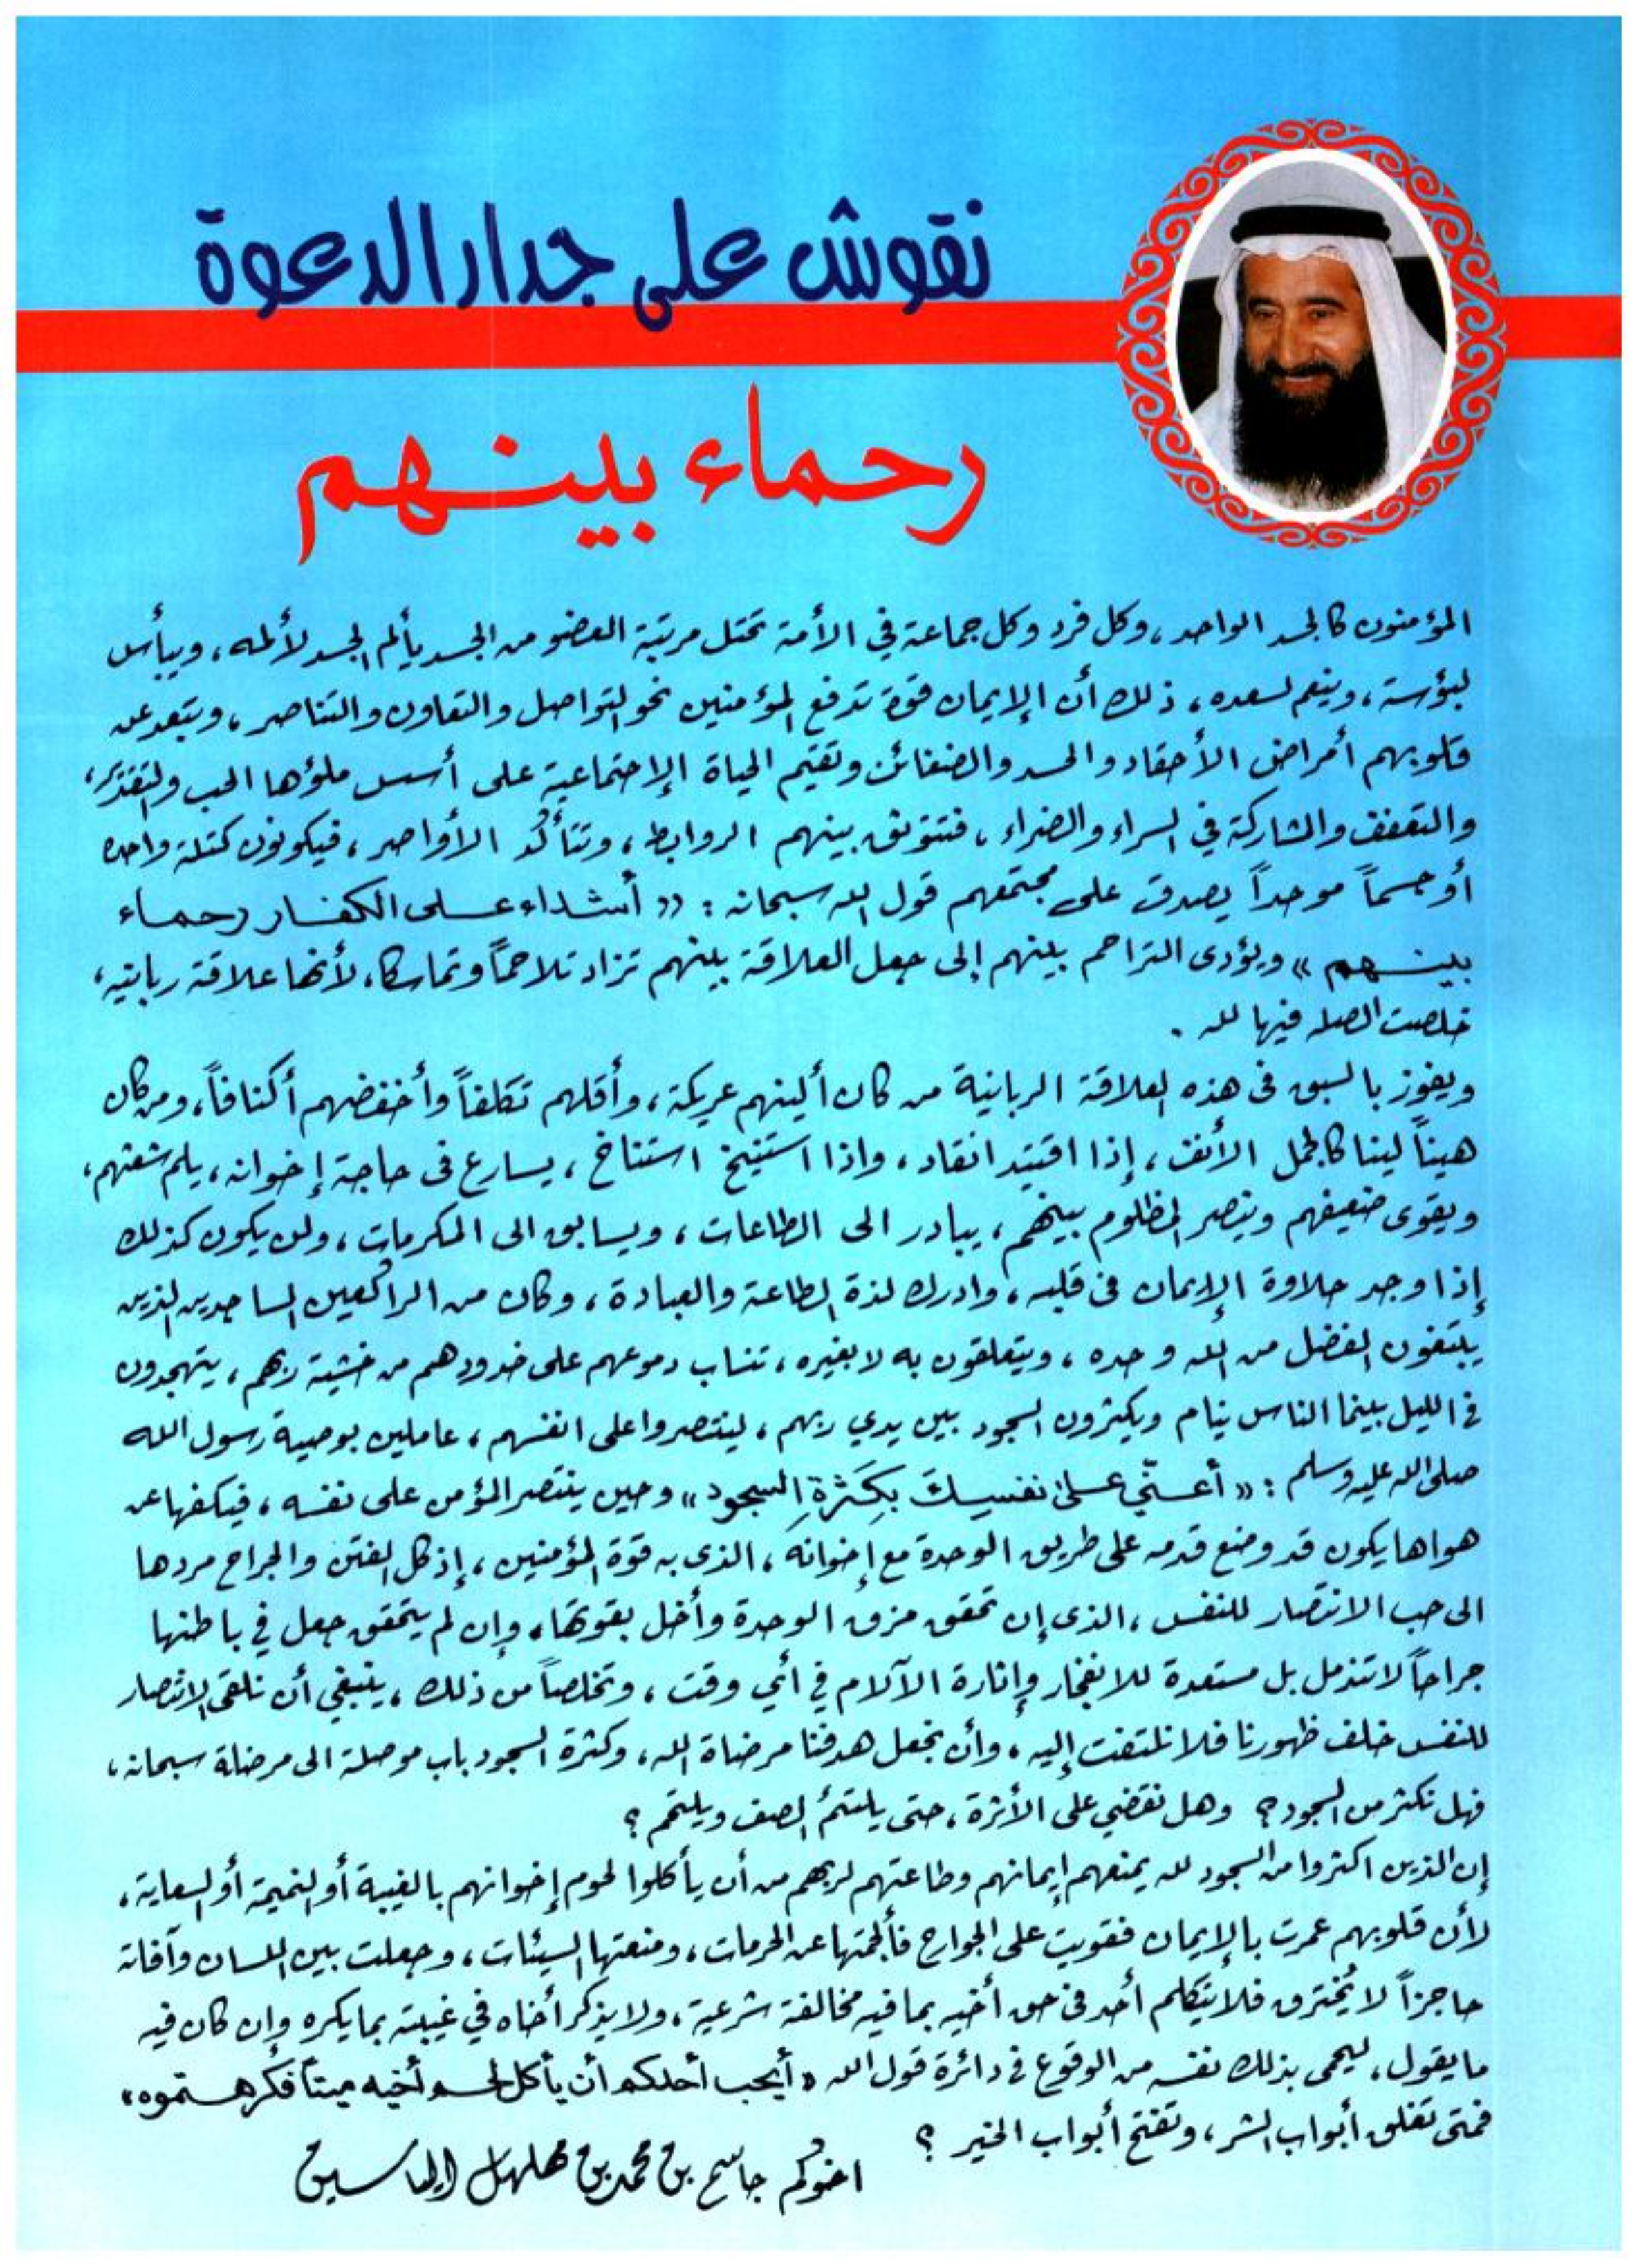 نقوش على جدار الدعوة
رحماء بينهم
المؤمنون كالجسد الواحد، وكل فرد وكل جماعة في الأمة تحتل مرتبة العضو من الجسد يألم الجسد لألمه، ويبأس
لبؤسة، وينعم لسعده، ذلك أن الإيمان قوة تدفع المؤمنين نحو التواصل والتعاون والتناصر، ويبعد عن
قلوبهم أمراض الأحقاد والحسد والضغائن وتقيم الحياة الإجتماعية على أسس ملؤها الحب والتقدير،
والتعفف والمشاركة في السراء والضراء، فتتوثق بينهم الروابط، وتتأكد الأواصر، فيكونون كتلة واحدة
أو جسماً موحداً يصدق على مجتمعهم قول الله سبحانه: «أشداء على الكفار رحماء
بينهم» ويؤدى التراحم بينهم إلى جعل العلاقة بينهم تزاد تلاحماً وتماسكا، لأنها علاقة ربانيه،
خلصت الصلة فيها لله.
ويفوز بالسبق في هذه العلاقة الربانية من كان ألينهم عريكة، وأقلهم تكلفاً وأخفضهم أكنافاً، ومن كان
هيناً لينا كالجمل الأنف، إذا اقتيد انقاد، واذا استنيخ استناخ، يسارع في حاجة إخوانه، يلم شعثهم،
ويقوى ضعيفهم وينصر المظلوم بينهم، يبادر الى الطاعات، ويسابق الى المكرمات، ولن يكون كذلك
إذا وجد حلاوة الإيمان في قلبه، وادرك لذة الطاعة والعبادة، وكان من الراكعين الساجدين الذين
يبتغون الفضل من الله وحده، ويتعلقون به لا بغيره، تنساب دموعهم على خدودهم من خشية ربهم، يتهجدون
في الليل بينما الناس نيام ويكثرون السجود بين يدي ربهم، لينتصروا على انفسهم، عاملين بوصية رسول الله
صلى الله عليه وسلم: «أعنّي على نفسك بكثرة السجود» وحين ينتصر المؤمن على نفسه، فيكفها عن
هواها يكون قد وضع قدمه على طريق الوحدة مع إخوانه، الذى به قوة المؤمنين، إذ كل الفتن والجراح مردها
الى حب الانتصار للنفس، الذى إن تحقق مزق الوحدة وأخل بقوتها، وإن لم يتحقق جعل في باطنها
جراحاً لا تندمل بل مستعدة للانفجار وإثارة الآلام في أي وقت، وتخلصاً من ذلك، ينبغي أن نلقى الانتصار
للنفس خلف ظهورنا فلا نلتفت إليه، وأن نجعل هدفنا مرضاة الله، وكثرة السجود باب موصلة الى مرضاة سبحانه،
فهل نكثر من السجود؟ وهل نقضي على الأثرة، حتى يلتئم الصف ويلتحم؟
إن الذين اكثروا من السجود لله يمنعهم إيمانهم وطاعتهم لربهم من أن يأكلوا لحوم إخوانهم بالغيبة أو النميمة أو السعاية،
لأن قلوبهم عمرت بالإيمان فقويت على الجوارح فألجمتها عن الحرمات، ومنعتها السيئات، وجعلت بين اللسان وآفاته
حاجزاً لا يُخترق فلا يتكلم أحد في حق أخيه بما فيه مخالفة شرعية، ولا يذكر أخاه في غيبته بما يكره وإن كان فيه
ما يقول، ليحمى بذلك نفسه من الوقوع في دائرة قول الله «أيحب أحدكم أن يأكل لحم أخيه ميتاً فكرهتموه»
فمتى تغلق أبواب الشر، وتفتح أبواب الخير؟
اخوكم جاسم بن محمد بن مهلهل الياسين